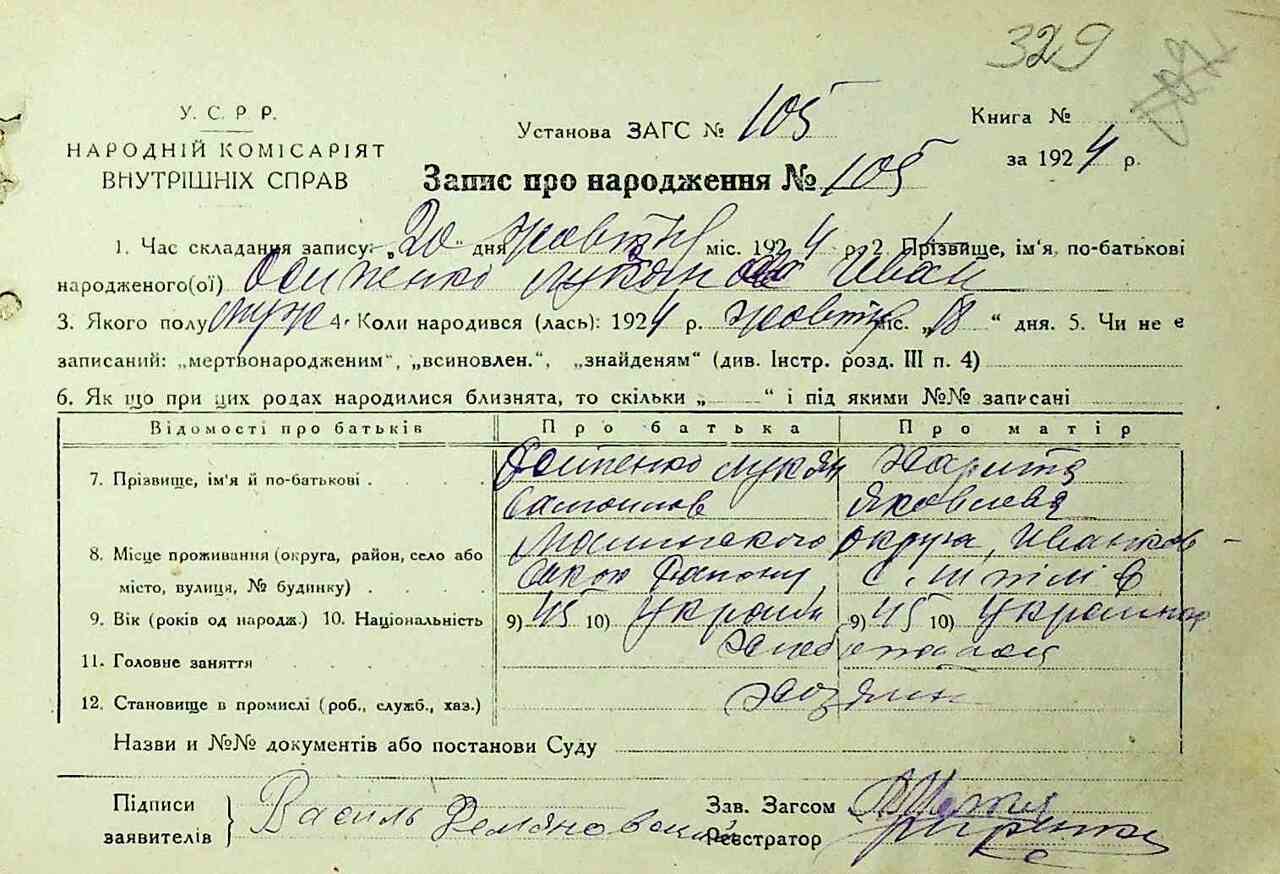 329
У. С. Р Р.
НАРОДНІЙ КОМІСАРІЯТ
ВНУТРІШНІХ СПРАВ
Установа ЗАГС № 105
Книга №
за 1924 р.
Запис про народження № 105
1. Час складання запису: „20“ дня жовтня міс. 1924 р. 2. Прізвище, ім'я, по-батькові
народженого(ої) Осипенко Лукянов Иван
3. Якого полу муж 4. Коли народився (лась): 1924 р. жовтня міс. „18“ дня. 5. Чи не є
записаний: „мертвонародженим“, „всиновлен.“, „знайденям“ (див. Інстр. розд. III п. 4)
6. Як що при цих родах народилися близнята, то скільки „ “ і під якими №№ записані
Відомості про батьків Про батька Про матір
7. Прізвище, ім'я й по-батькові Осипенко Лукян Харитя
Яковлева
8. Місце проживання (округа, район, село або Малинского округа, Иванков-
місто, вулиця, № будинку) ского району с.
9. Вік (років од народж.) 10. Національність 9) 45 10) Украин 9) 45 10) Украинка
11. Головне заняття
12. Становище в промислі (роб., служб., хаз.) Хозяин
Назви и №№ документів або постанови Суду
Підписи Зав. Загсом
заявителів Василь Демяновский Реєстратор